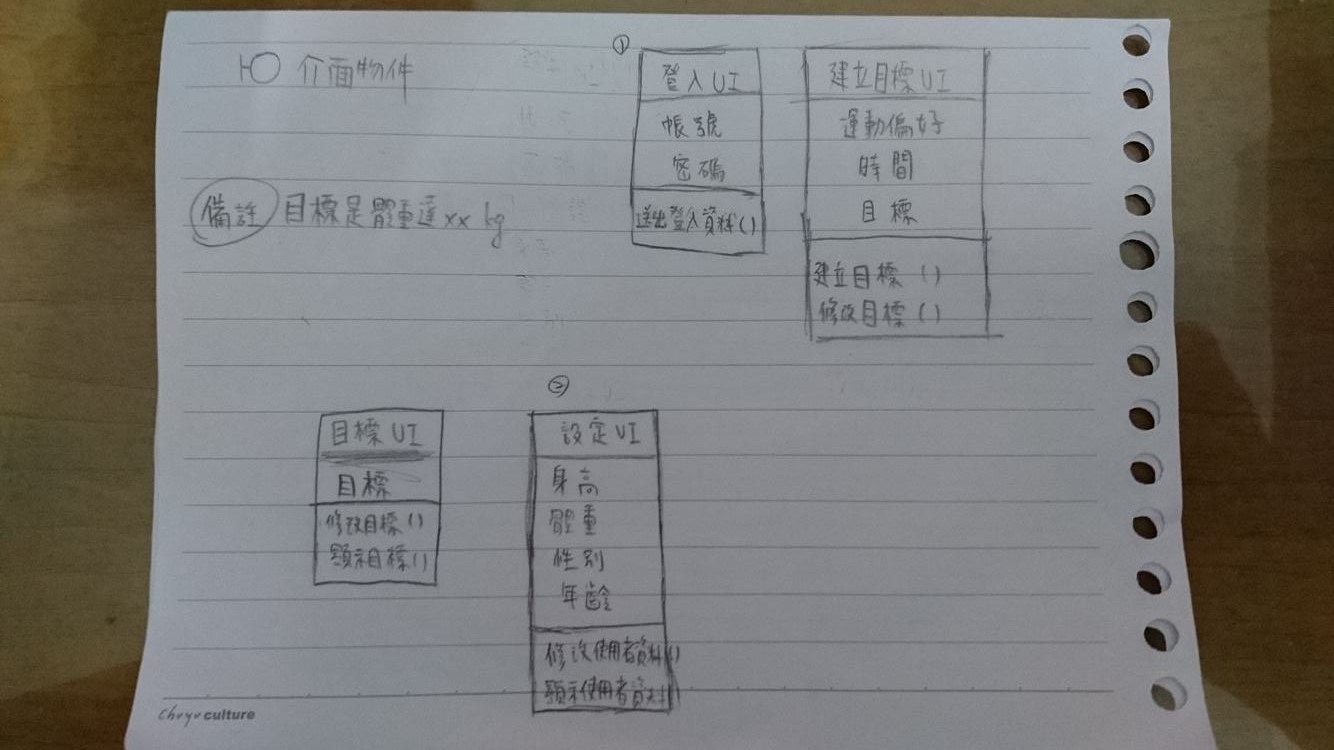 介面物件
備註 目標是體重達xx kg
①
登入UI
帳號
密碼
送出登入資料()
建立目標UI
運動偏好
時間
目標
建立目標()
修改目標()
目標UI
目標
修改目標()
顯示目標()
②
設定UI
身高
體重
性別
年齡
修改使用者資料()
顯示使用者資料()
Chuyu culture